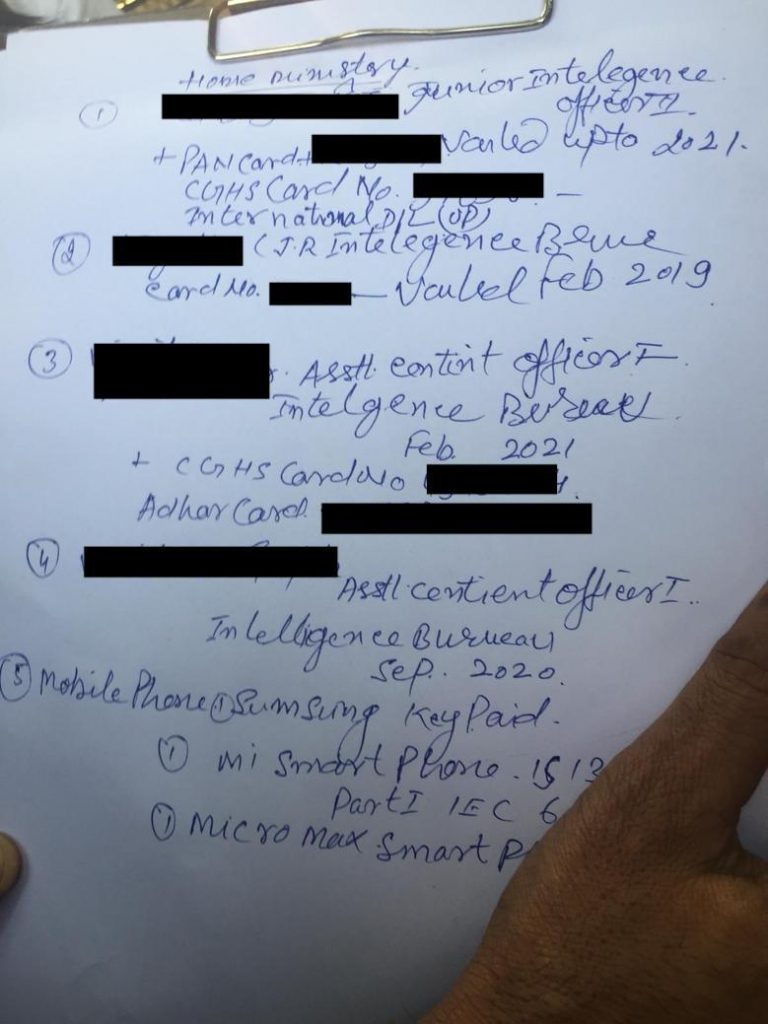 Home ministary.
① Junior Intelegence
officer II.
+ PAN Card + Vailed upto 2021.
CGHS Card No. —
International D/L (UP)
② ( J.R Intelegence Beruae
Card No. — Vailed Feb 2019
③ Asstt. centint officer I
Intelgence Bureau
Feb. 2021
+ CGHS Card No
Adhar Card.
④
Asstt. centient officer I.
Intelligence Burueau
Sep. 2020.
⑤ Mobile Phone ① Sumsung Key Paid.
① Mi Smart Phone. IS 13
Part I IEC 6
① Micro max Smart P